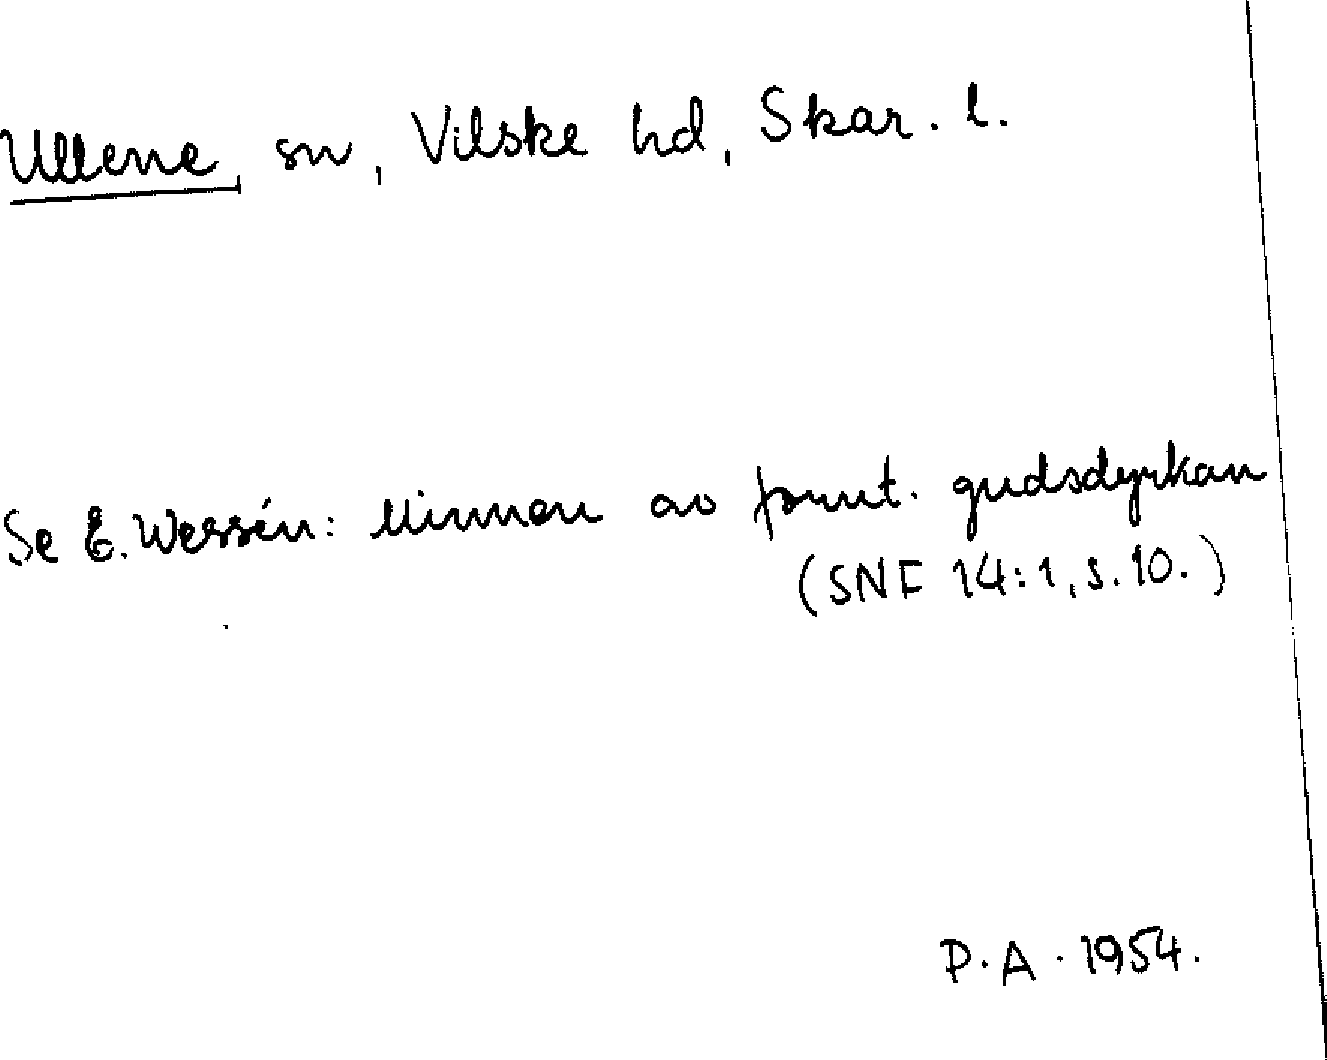 Ullene, sn, Vilske hd, Skar. l.
Se E. Wessén: Minnen av fornt. gudsdyrkan
(SNF 14:1, s. 10.)
P.A. 1954.